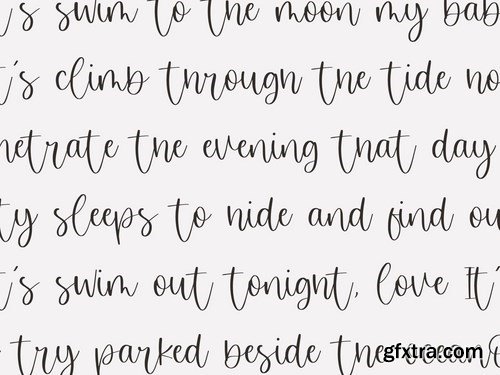 t's swim to the moon my bab
t's climb through the tide no
netrate the evening that day
ty sleeps to hide and find ou
t's swim out tonight, love It'
try parked beside the ocean
gfxtra.com